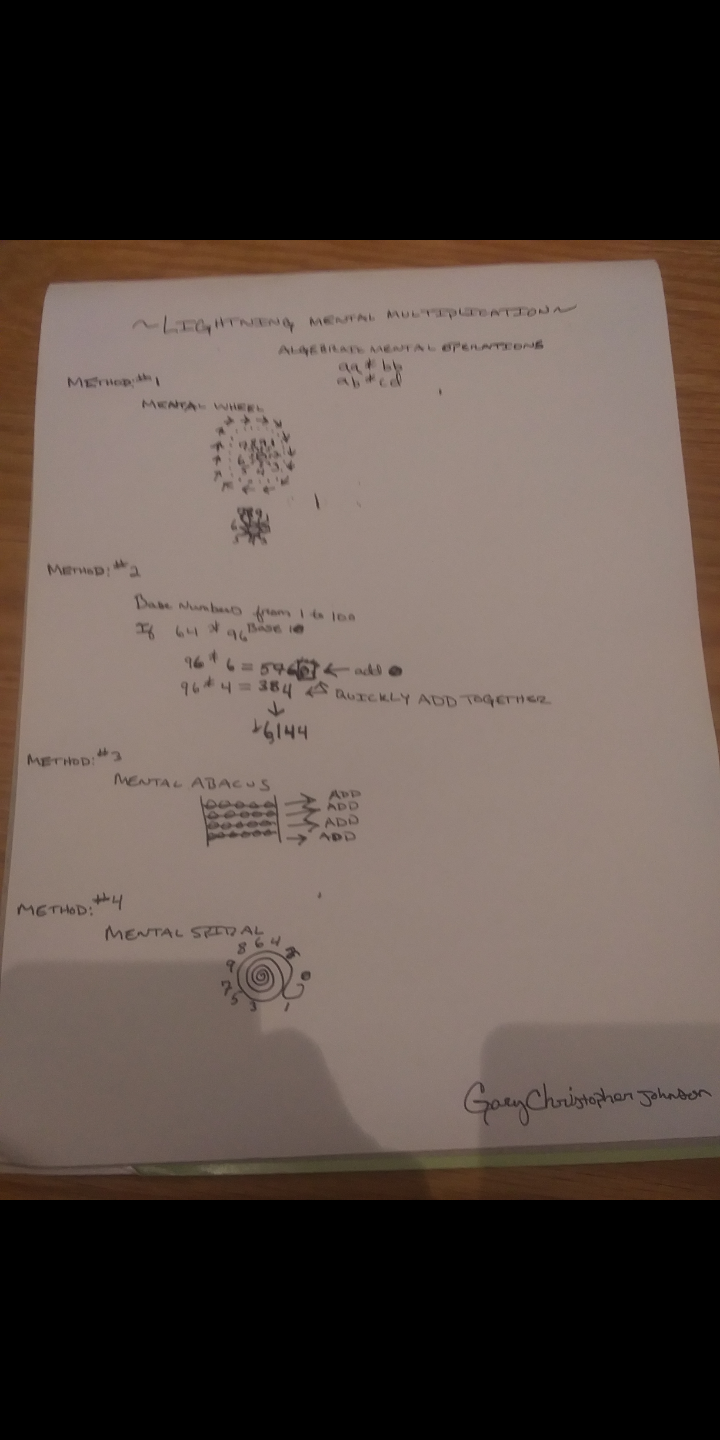 ~LIGHTNING MENTAL MULTIPLICATION~
ALGEBRAIC MENTAL OPERATIONS
aa * bb
METHOD: #1
ab * cd
MENTAL WHEEL
METHOD: #2
Base Numbers from 1 to 100
If 64 * 96 Base 10
96 * 6 = 5760 ← add 0
96 * 4 = 384 ← QUICKLY ADD TOGETHER
6144
METHOD: #3
MENTAL ABACUS
ADD
ADD
ADD
ADD
METHOD: #4
MENTAL SPIRAL
8 6 4
9 0
5 3 1
Gary Christopher Johnson